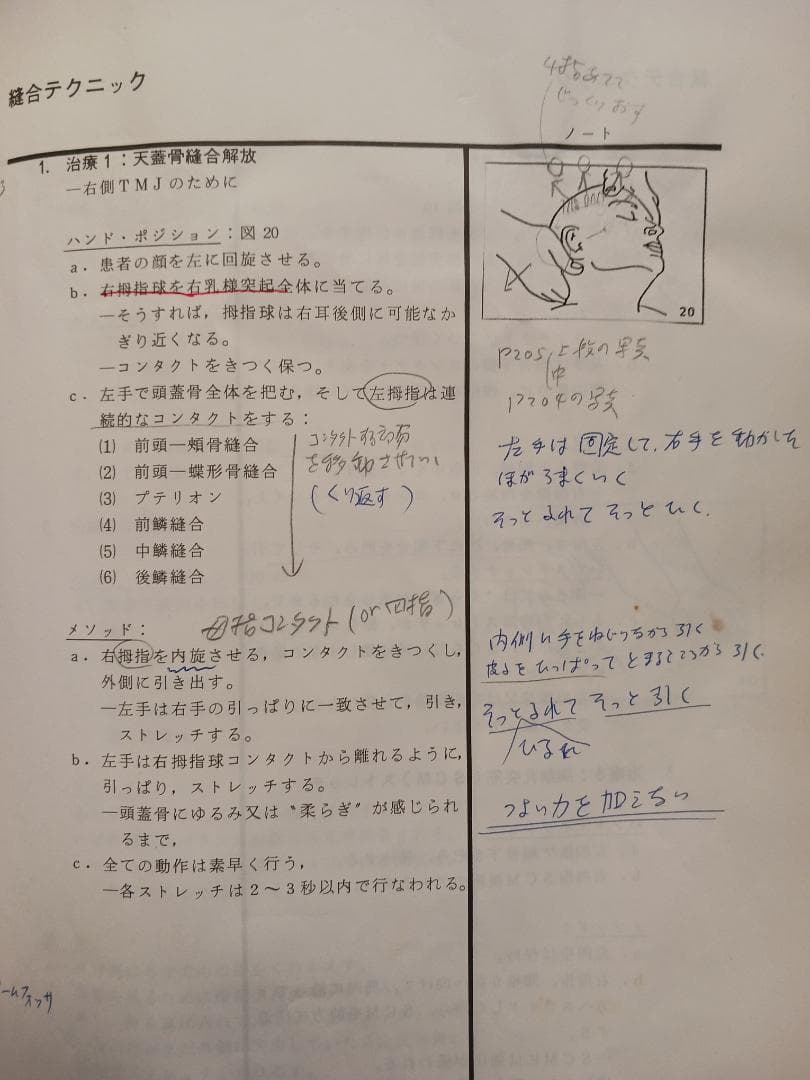 縫合テクニック
4指あてて
じっくりおす
ノート
1. 治療1：天蓋骨縫合解放
―右側TMJのために
ハンド・ポジション：図20
a．患者の顔を左に回旋させる。
b．右拇指球を右乳様突起全体に当てる。
―そうすれば，拇指球は右耳後側に可能なか
ぎり近くなる。
―コンタクトをきつく保つ。
c．左手で頭蓋骨全体を把む，そして左拇指は連
続的なコンタクトをする：
(1) 前頭―頬骨縫合
(2) 前頭―蝶形骨縫合
(3) プテリオン
(4) 前鱗縫合
(5) 中鱗縫合
(6) 後鱗縫合
コンタクトする
を移動させてい
(くり返す)
メソッド：
母指コンタクト(or 四指)
a．右拇指を内旋させる，コンタクトをきつくし，
外側に引き出す。
―左手は右手の引っぱりに一致させて，引き，
ストレッチする。
b．左手は右拇指球コンタクトから離れるように，
引っぱり，ストレッチする。
―頭蓋骨にゆるみ又は〝柔らぎ〞が感じられ
るまで，
c．全ての動作は素早く行う，
―各ストレッチは2～3秒以内で行なわれる。
20
P205 上段の写真
中
P204の写真
左手は固定して、右手を動かした
ほがうまくいく
そっとふれてそっとひく.
内側に手をねじりながら引く
皮ふをひっぱってとまるところから引く.
そっとふれてそっと引く
つよい力を加えない
ームフォッサ